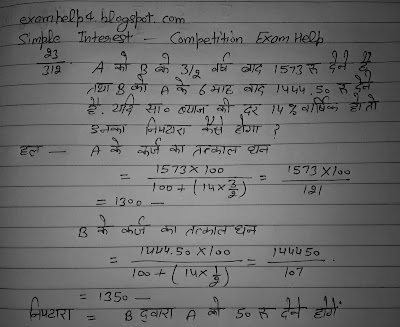 examhelp4.blogspot.com
Simple Interest - Competition Exam Help
23/312 A को B के 3/2 वर्ष बाद 1573 रू देने हैं
तथा B को A के 6 माह बाद 1444.50 रू देने
हैं. यदि सा० ब्याज की दर 14% वार्षिक हो तो
इनका निपटारा कैसे होगा ?
हल — A के कर्ज का तत्काल धन
= 1573 × 100 / 100 + (14 × 3/2) = 1573 × 100 / 121
= 1300 —
B के कर्ज का तत्काल धन
= 1444.50 × 100 / 100 + (14 × 1/2) = 144450 / 107.
= 1350 —
निपटारा = B द्वारा A को 50 रू देने होगें